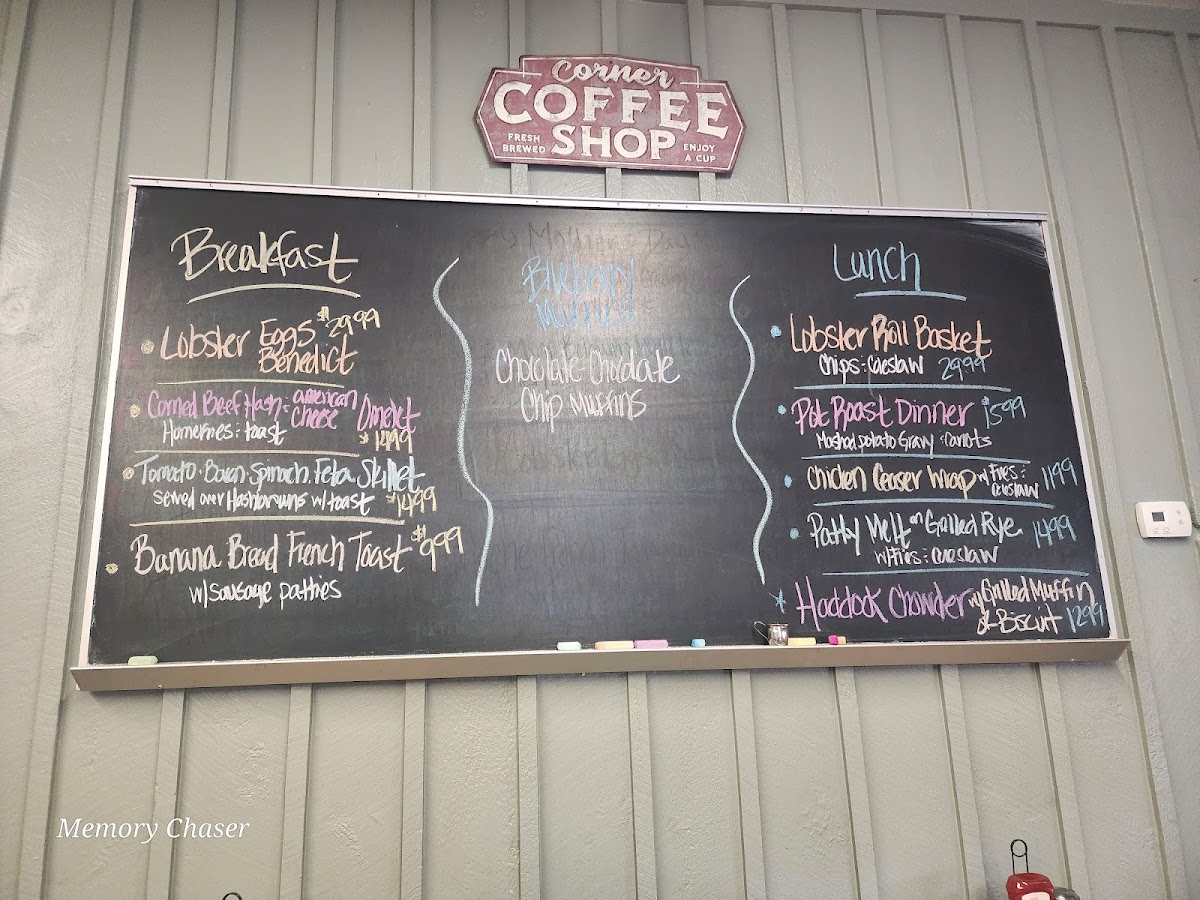 Corner
COFFEE
SHOP
FRESH
BREWED
ENJOY
A CUP
Breakfast
Lobster Eggs $29.99
Benedict
Corned Beef Hash : american
cheese Omelet
Homefries : toast $14.99
Tomato. Bacon. Spinach. Feta Skillet
served over Hashbrowns w/ toast $14.99
Banana Bread French Toast $9.99
w/ sausage patties
Mother's Day
Blueberry
Muffins
Chocolate-Chocolate
Chip Muffins
Lunch
Lobster Roll Basket
Chips : Coleslaw 29.99
Pot Roast Dinner $15.99
Mashed potato Gravy : Carrots
Chicken Ceaser Wrap w/ Fries :
Coleslaw 11.99
Patty Melt on Grilled Rye 14.99
w/ Fries : Coleslaw
Haddock Chowder w/ Grilled Muffin
or Biscuit 12.99
Memory Chaser